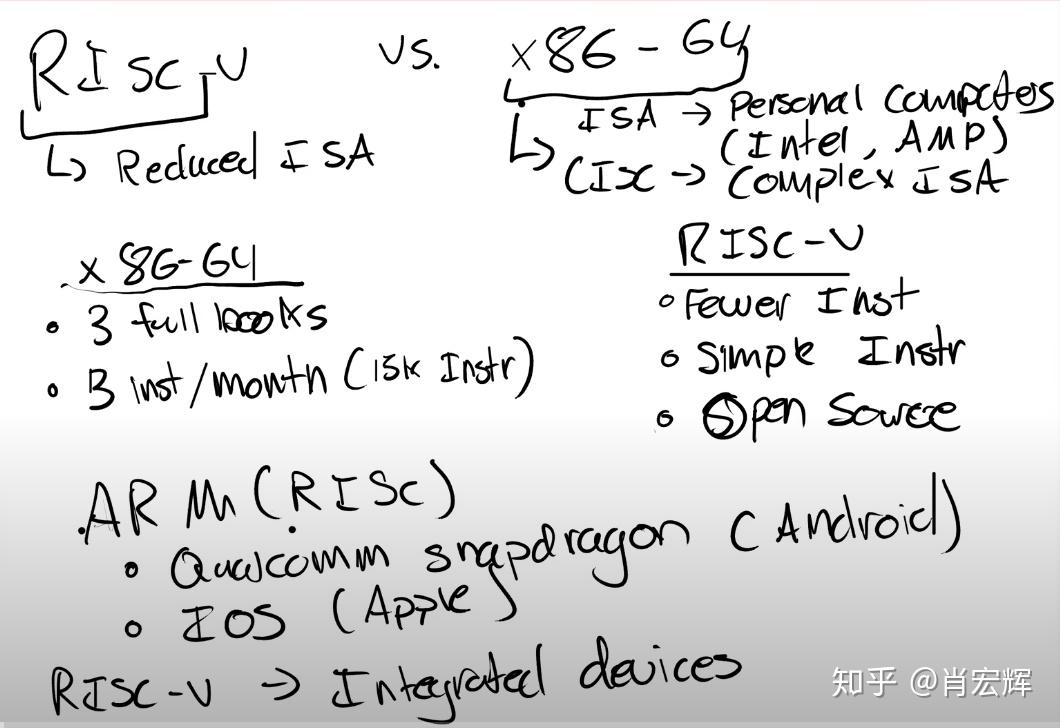 RISC-V vs. x86-64
ISA → Personal Computers
(Intel, AMP)
↳ Reduced ISA
↳ CISC → Complex ISA
x86-64
• 3 full books
• 3 inst/month (15k Instr)
RISC-V
• Fewer Inst
• Simple Instr
• Open Source
ARM (RISC)
• Qualcomm snapdragon (Android)
• IOS (Apple)
RISC-V → Integrated devices
知乎 @肖宏辉